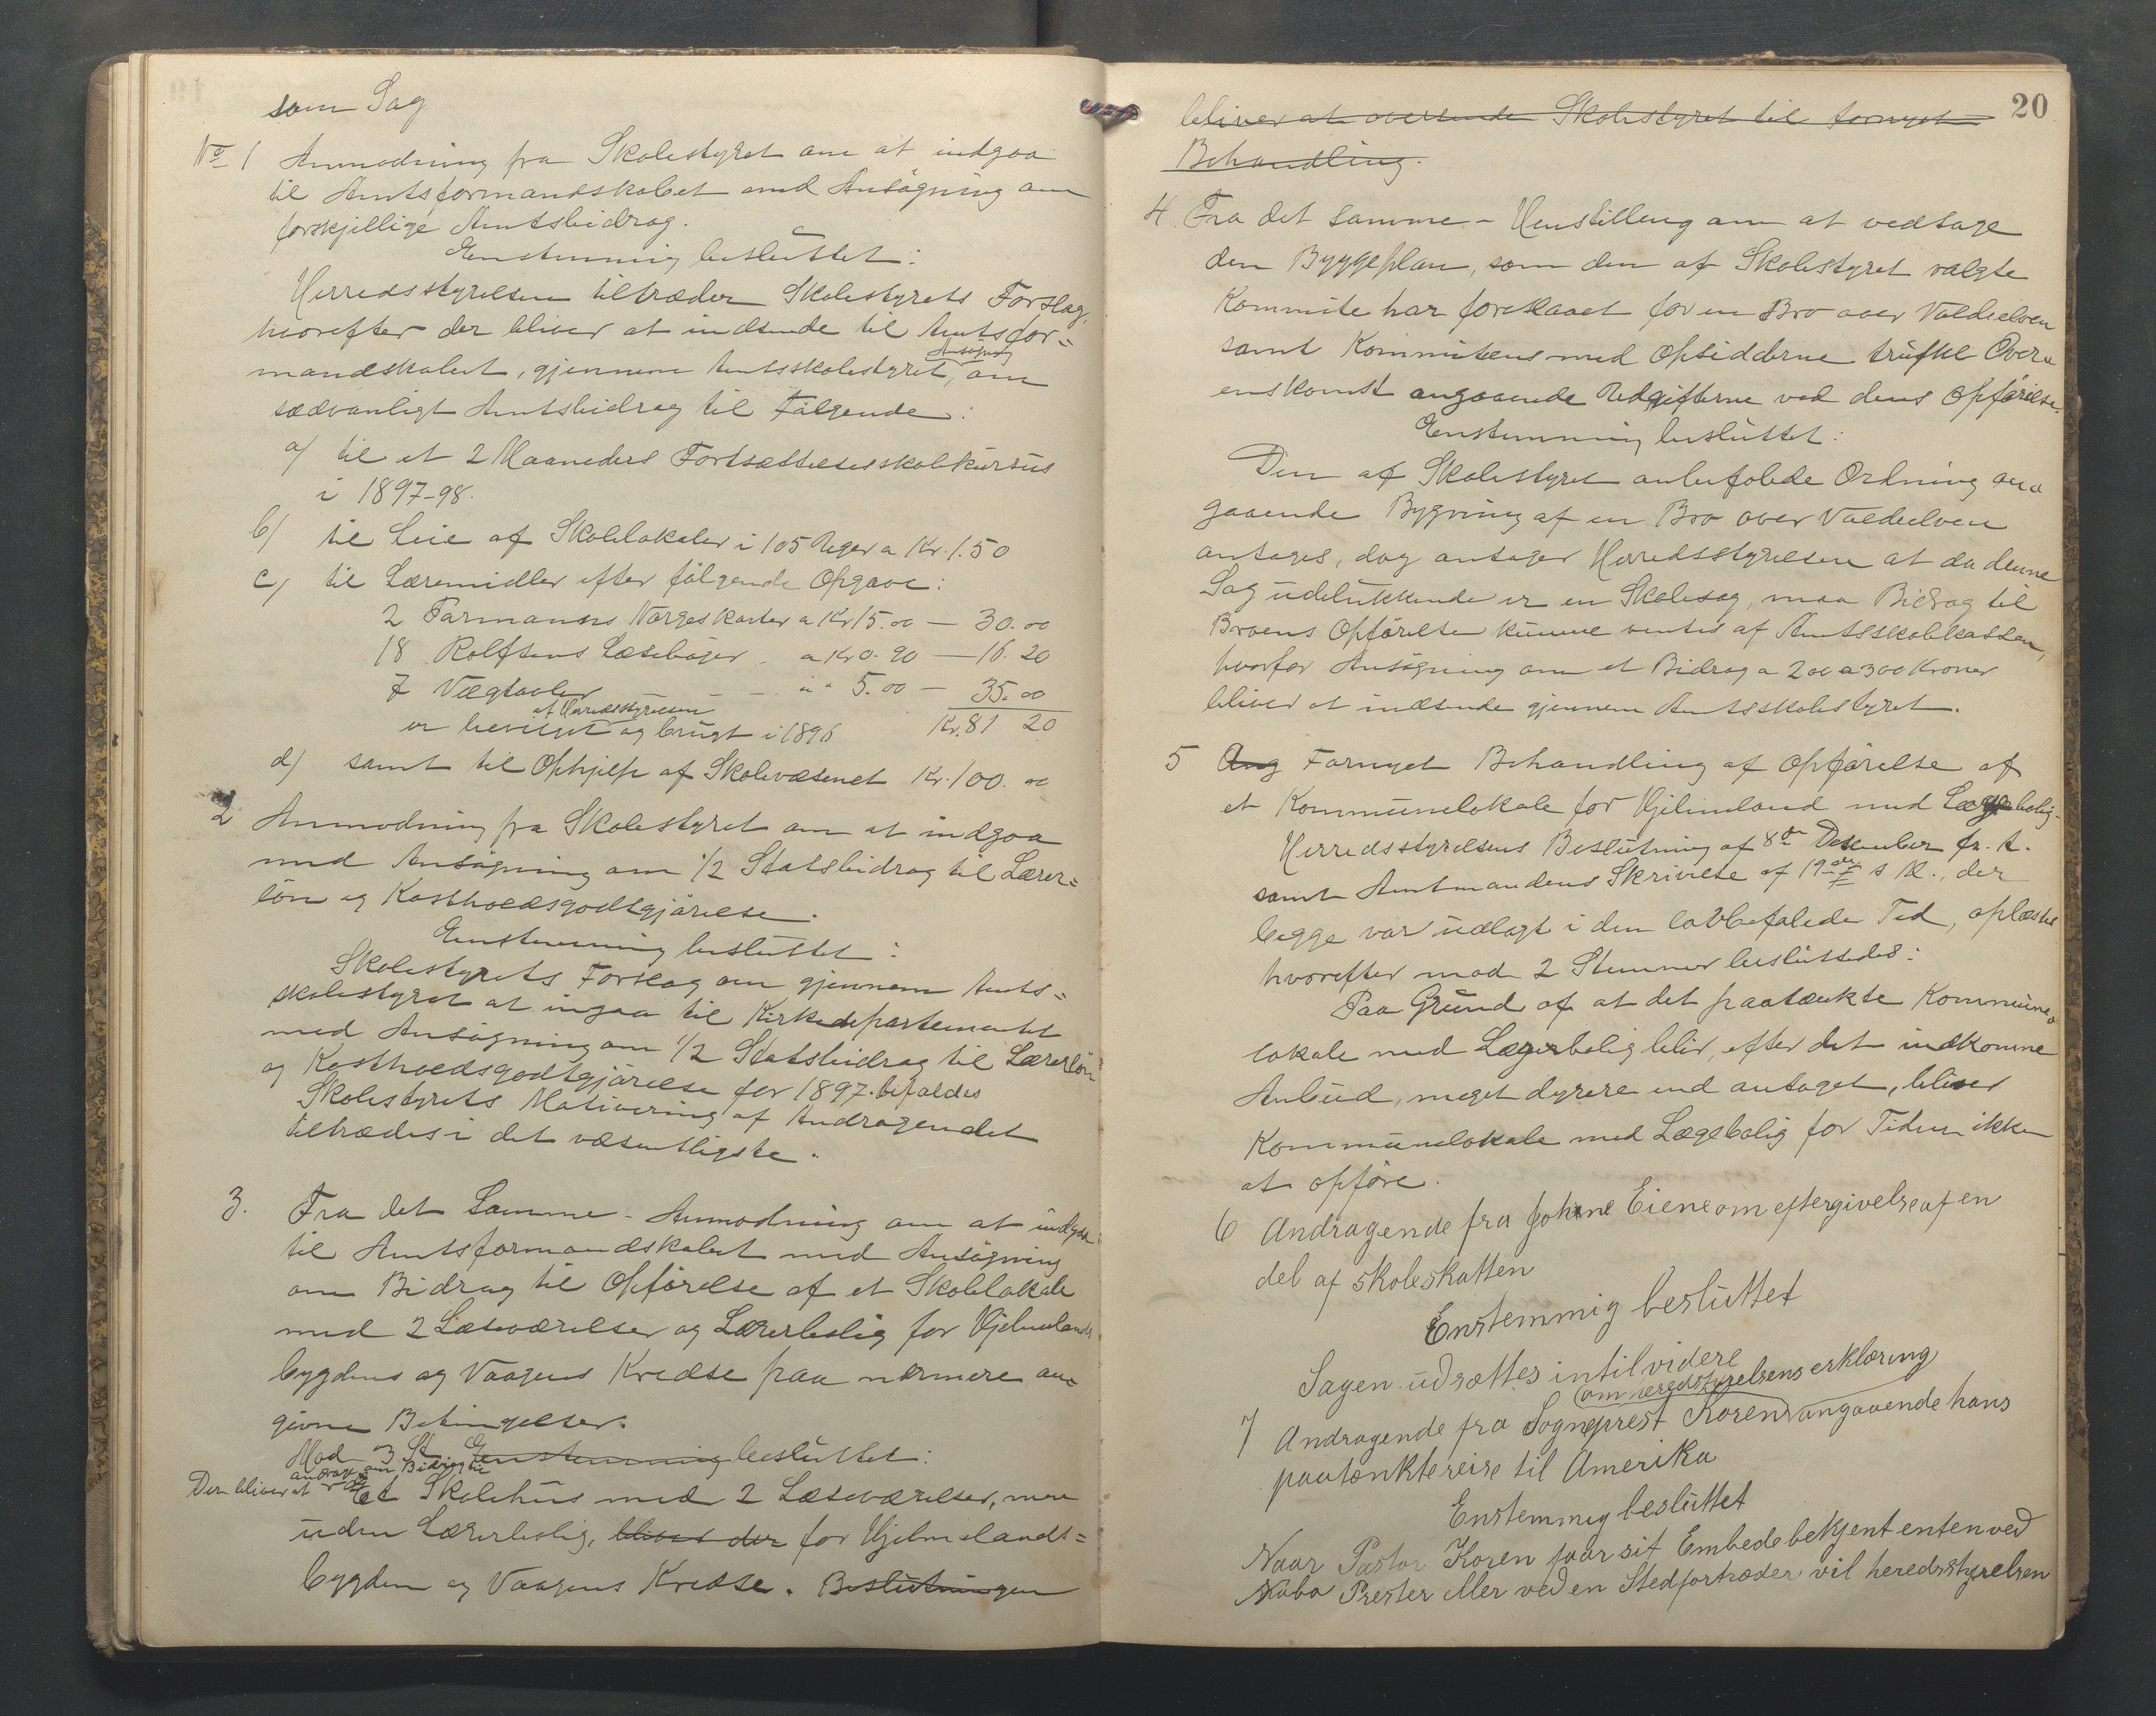 som Sag
No 1 Anmodning fra Skolestyret om at indgaa
til Amtsformandskabet med Ansøgning om
forskjellige Amtsbidrag.
Enstemmig besluttet:
Herredsstyrelsen tiltræder Skolestyrets Forslag,
hvorefter der bliver at indsende til Amtsfor=
mandskabet, gjennem Amtsskolestyret, Ansøgning om
sædvanligt Amtsbidrag til Følgende:
a/ til et 2 Maaneders Fortsættelsesskolekursus
i 1897-98.
b/ til Leie af Skolelokaler i 105 Uger a Kr. 1.50
c/ til Læremidler efter følgende Opgave:
2 Farmanns Norgeskarter a Kr 15.00 — 30.00
18 Rolfsens Læsebøger a Kr 0.90 — 16.20
7 Vægtavler " " 5.00 — 35.00
er bevilget af Herredsstyrelsen og brugt i 1896 Kr. 81 20
d/ samt til Ophjelp af Skolevæsenet Kr. 100.00
2 Anmodning fra Skolestyret om at indgaa
med Ansøgning om 1/2 Statsbidrag til Lærer=
løn og Kostholdsgodtgjørelse.
Enstemmig besluttet:
Skolestyrets Forslag om gjennem Amts=
skolestyret at ingaa til Kirkedepartementet
med Ansøgning om 1/2 Statsbidrag til Lærerløn
og Kostholdsgodtgjørelse for 1897. bifaldes
Skolestyrets Motivering af Andragendet
tiltrædes i det væsentligste.
3. Fra det Samme - Anmodning om at indgaa
til Amtsformandskabet med Ansøgning
om Bidrag til Opførelse af et Skolelokale
med 2 Læseværelser og Lærerbolig for Hjelmelands
bygdens og Vaagens Kredse paa nærmere an=
givne Betingelser.
Mod 3 St. Enstemmig besluttet:
Der bliver at andrage om Bidrag til
Et Skolehus med 2 Læseværelser, men
uden Lærerbolig, bliver der for Hjelmelands=
bygden og Vaagens Kredse. Beslutningen
20
bliver at oversende Skolestyret til fornyet
Behandling.
4 Fra det samme - Henstilling om at vedtage
den Byggeplan, som den af Skolestyret valgte
Kommite har foreslaaet for en Bro over Valdeelven
samt Kommiteens med Opsidderne trufne Over=
enskomst angaaende Udgifterne ved dens Opførelse.
Enstemmig besluttet:
Den af Skolestyret anbefalede Ordning an=
gaaende Bygning af en Bro over Valdeelven
antages, dog antager Herredsstyrelsen at da denne
Sag udelukkende er en Skolesag, maa Bidrag til
Broens Opførelse kunne ventes af Amtsskolekassen,
hvorfor Ansøgning om et Bidrag a 200 a 300 Kroner
bliver at indsende gjennem Amtsskolestyret.
5 Ang Fornyet Behandling af Opførelse af
et Kommunelokale for Hjelmeland med Lægebolig-
Herredsstyrelsens Beslutning af 8de Desember fr. A.
samt Amtmandens Skrivelse af 19de s M., der
begge var udlagt i den lovbefalede Tid, oplæstes
hvorefter mod 2 Stemmer besluttedes:
Paa Grund af at det paatænkte Kommune=
lokale med Lægebolig blir, efter det indkomne
Anbud, meget dyrere end antaget, bliver
Kommunelokale med Lægebolig for Tiden ikke
at opføre.
6 Andragende fra Johane Eiene om eftergivelse af en
del af skoleskatten
Enstemmig besluttet
Sagen udsættes intil videre
7 Andragende fra Sogneprest Koren om heredstyrelsens erklæring angaaende hans
paatænkte reise til Amerika
Enstemmig besluttet
Naar Pastor Koren faar sit Embede betjent enten ved
Nabo Prester eller ved en Stedfortræder vil heredsstyrelsen